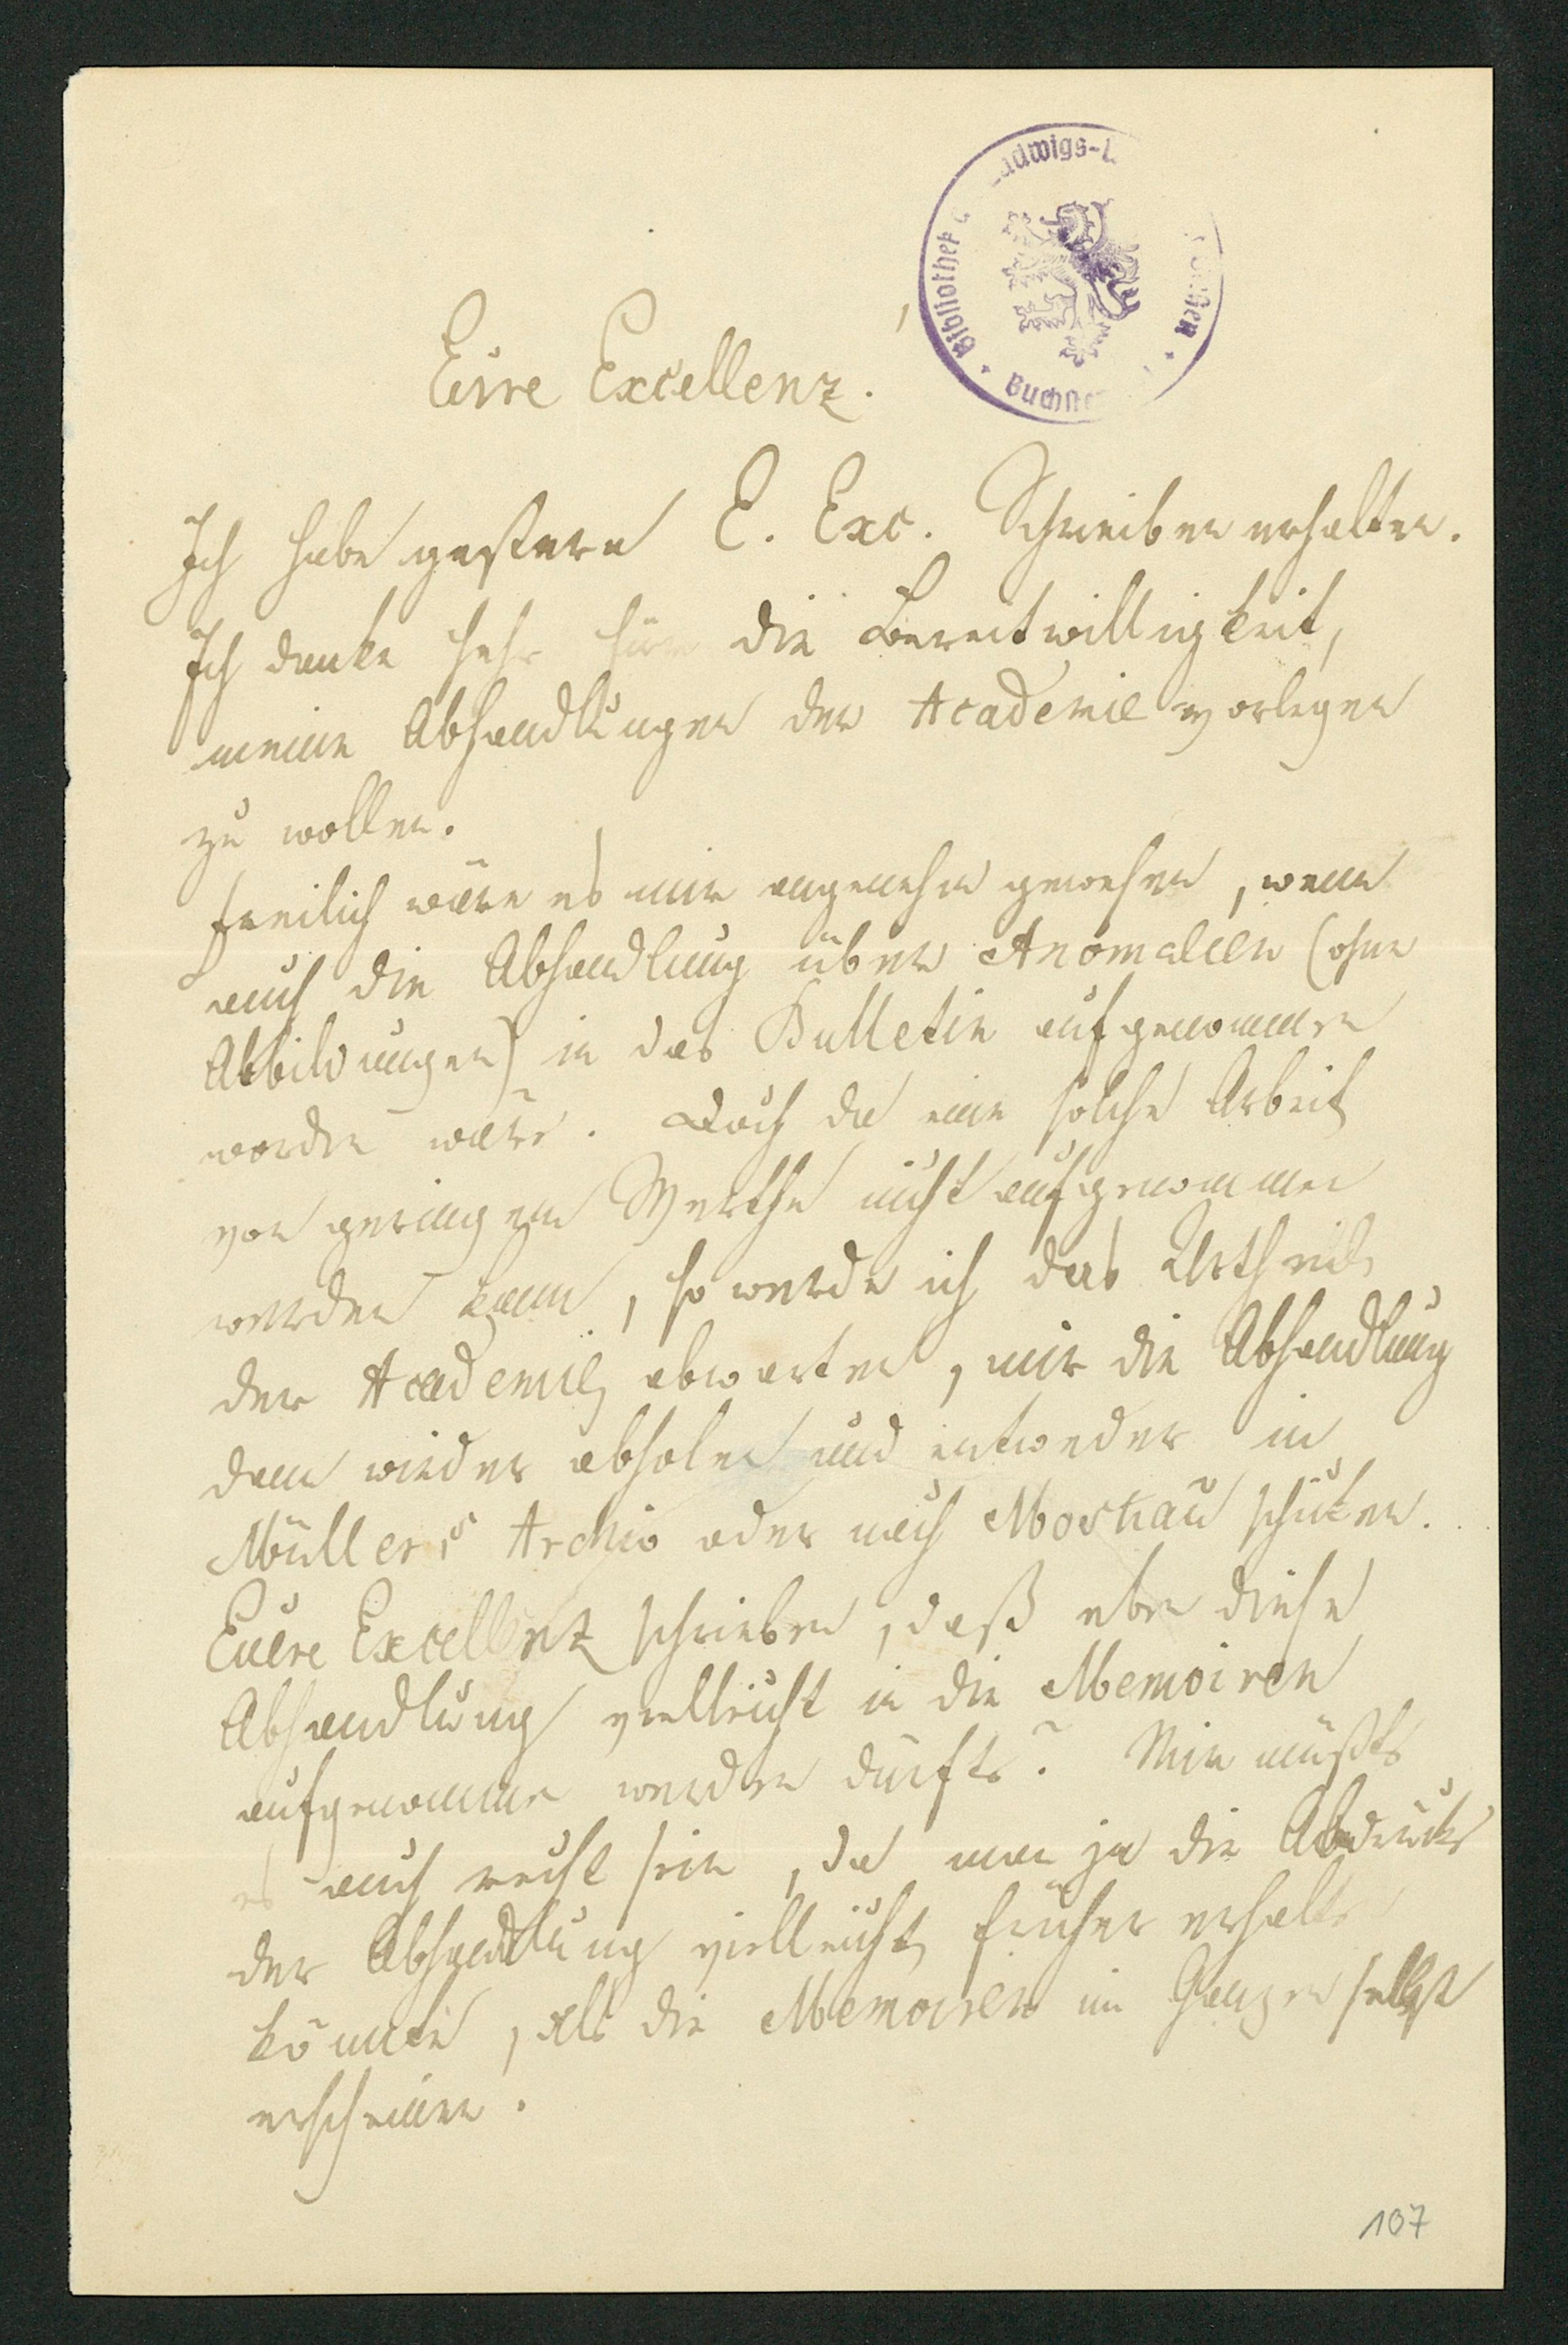 Bibliothek
adwigs-
Eure Excellenz.
Ich habe gestern E. Exc. Schreiben erhalten.
Ich danke sehr für die Bereitwilligkeit,
meine Abhandlungen der Academie vorlegen
zu wollen.
Freilich wäre es mir angenehm gewesen, wenn
auch die Abhandlung über Anomalien (ohne
Abbildungen) in das Bulletin aufgenommen
worden wäre. Doch da eine solche Arbeit
von geringem Werthe nicht aufgenommen
werden kann, so werde ich das Urtheil
der Academie abwarten, mir die Abhandlung
dann wieder abholen und entweder in
Müller's Archiv oder nach Moskau schicken.
Euere Excellenz schrieben, daß eben diese
Abhandlung vielleicht in die Memoiren
aufgenommen werden dürfte? Mir müßte
es auch recht sein, da man ja die Abdrücke
der Abhandlung vielleicht früher erhalten
könnte, als die Memoiren im Ganzen selbst
erscheinen.
107